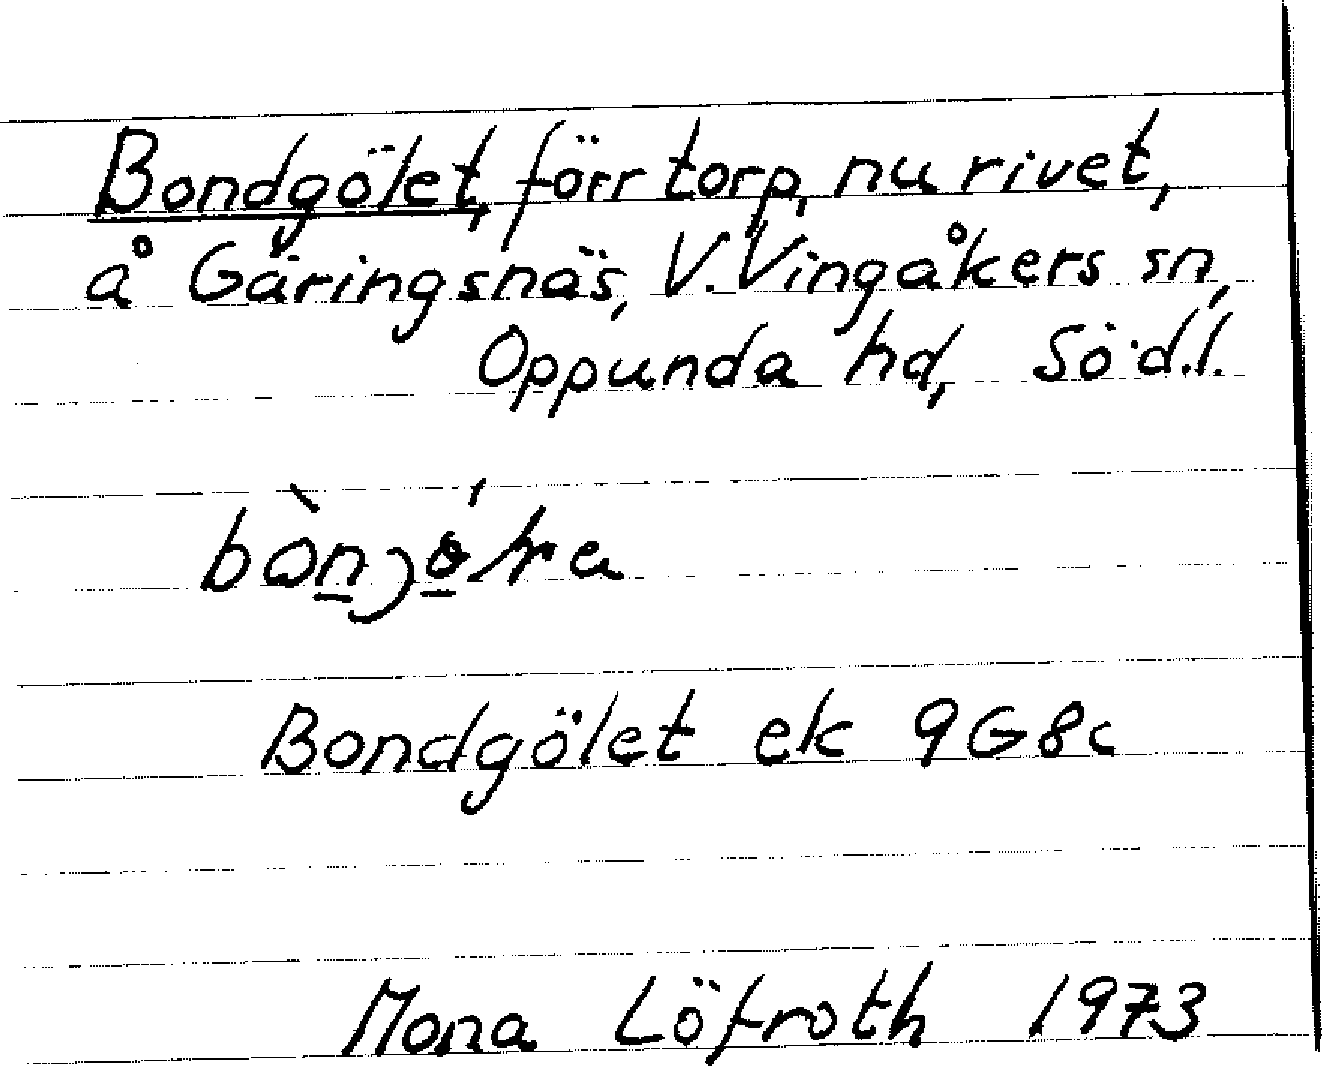 Bondgölet, förr torp, nu rivet,
å Gäringsnäs, V. Vingåkers sn,
Oppunda hd, Söd.l.
Bondgölet ek 9G8c
Mona Löfroth 1973